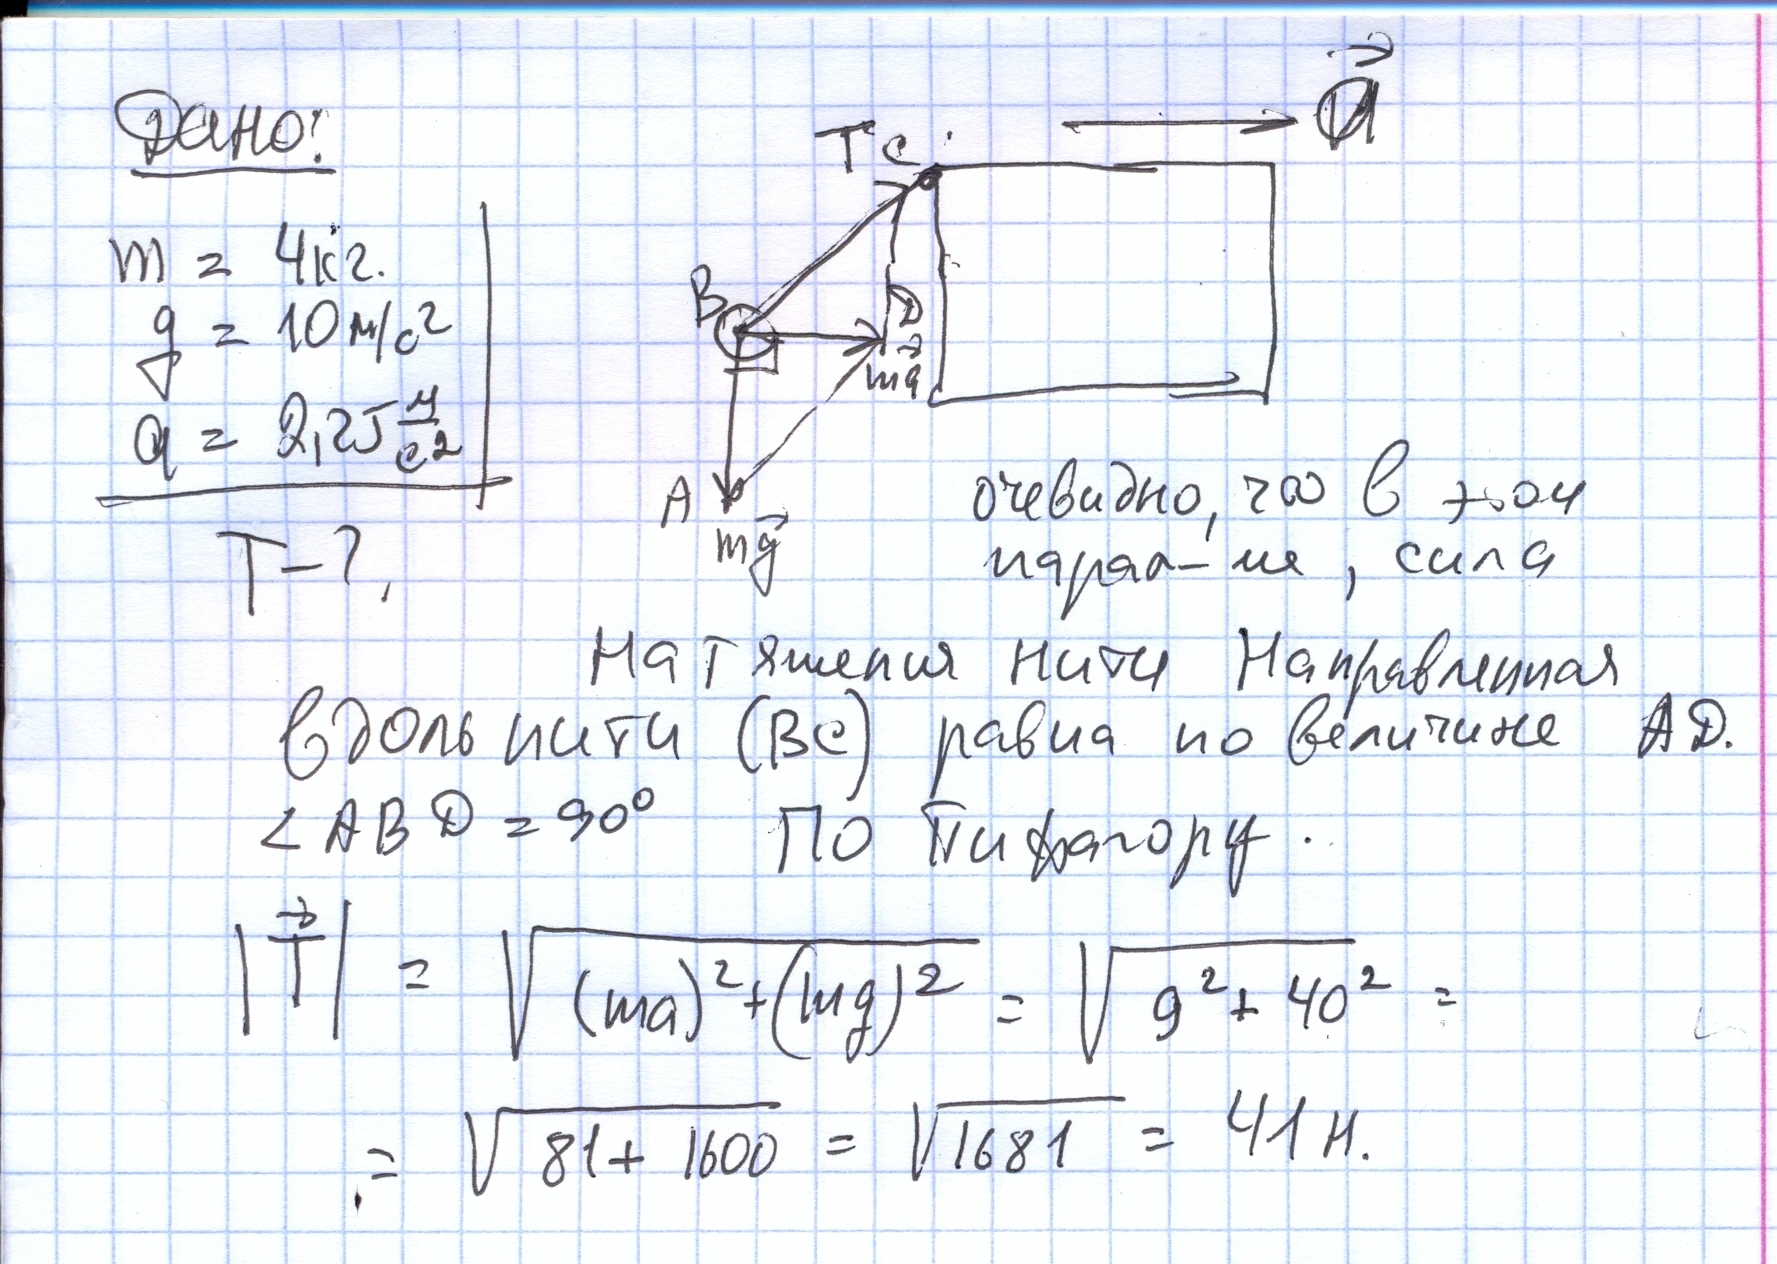 Дано:
m = 4кг.
g = 10 м/с²
a = 2,25 м/с²
T - ?
a
T C
B
D
ma
A
mg
очевидно, что в этом
парал-ме, сила
натяжения нити направленная
вдоль нити (BC) равна по величине AD.
∠ABD = 90° По Пифагору.
|T| = √(ma)² + (mg)² = √9² + 40² =
= √81 + 1600 = √1681 = 41 н.